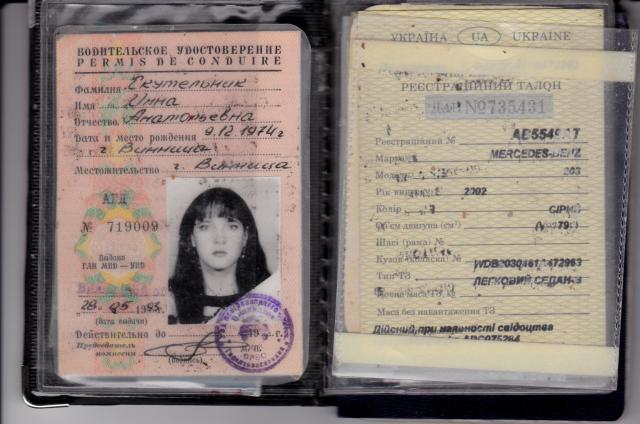 ВОДИТЕЛЬСКОЕ УДОСТОВЕРЕНИЕ
PERMIS DE CONDUIRE
Фамилия Скутельник
Имя Инна
Отчество Анатольевна
Дата и место рождения 9.12 1974г
г. Винница
Местожительство г. Винница
АГД
№ 719009
Выдано
ГАИ МВД — УВД
28 05 1993
(дата выдачи)
Действительно до 19 г.
Председатель комиссии
(подпись)
УКРАЇНА UA UKRAINE
РЕЄСТРАЦІЙНИЙ ТАЛОН
№735431
Реєстраційний № AB5549
Марка MERCEDES-BENZ
Модель 203
Рік 2002
Колір СІРИЙ
Об'єм двигуна (см³)
Шасі (рама) №
Кузов №
Тип ТЗ ЛЕГКОВИЙ СЕДАН-В
Повна маса ТЗ, кг
Маса без навантаження ТЗ
Дійсний при наявності свідоцтва